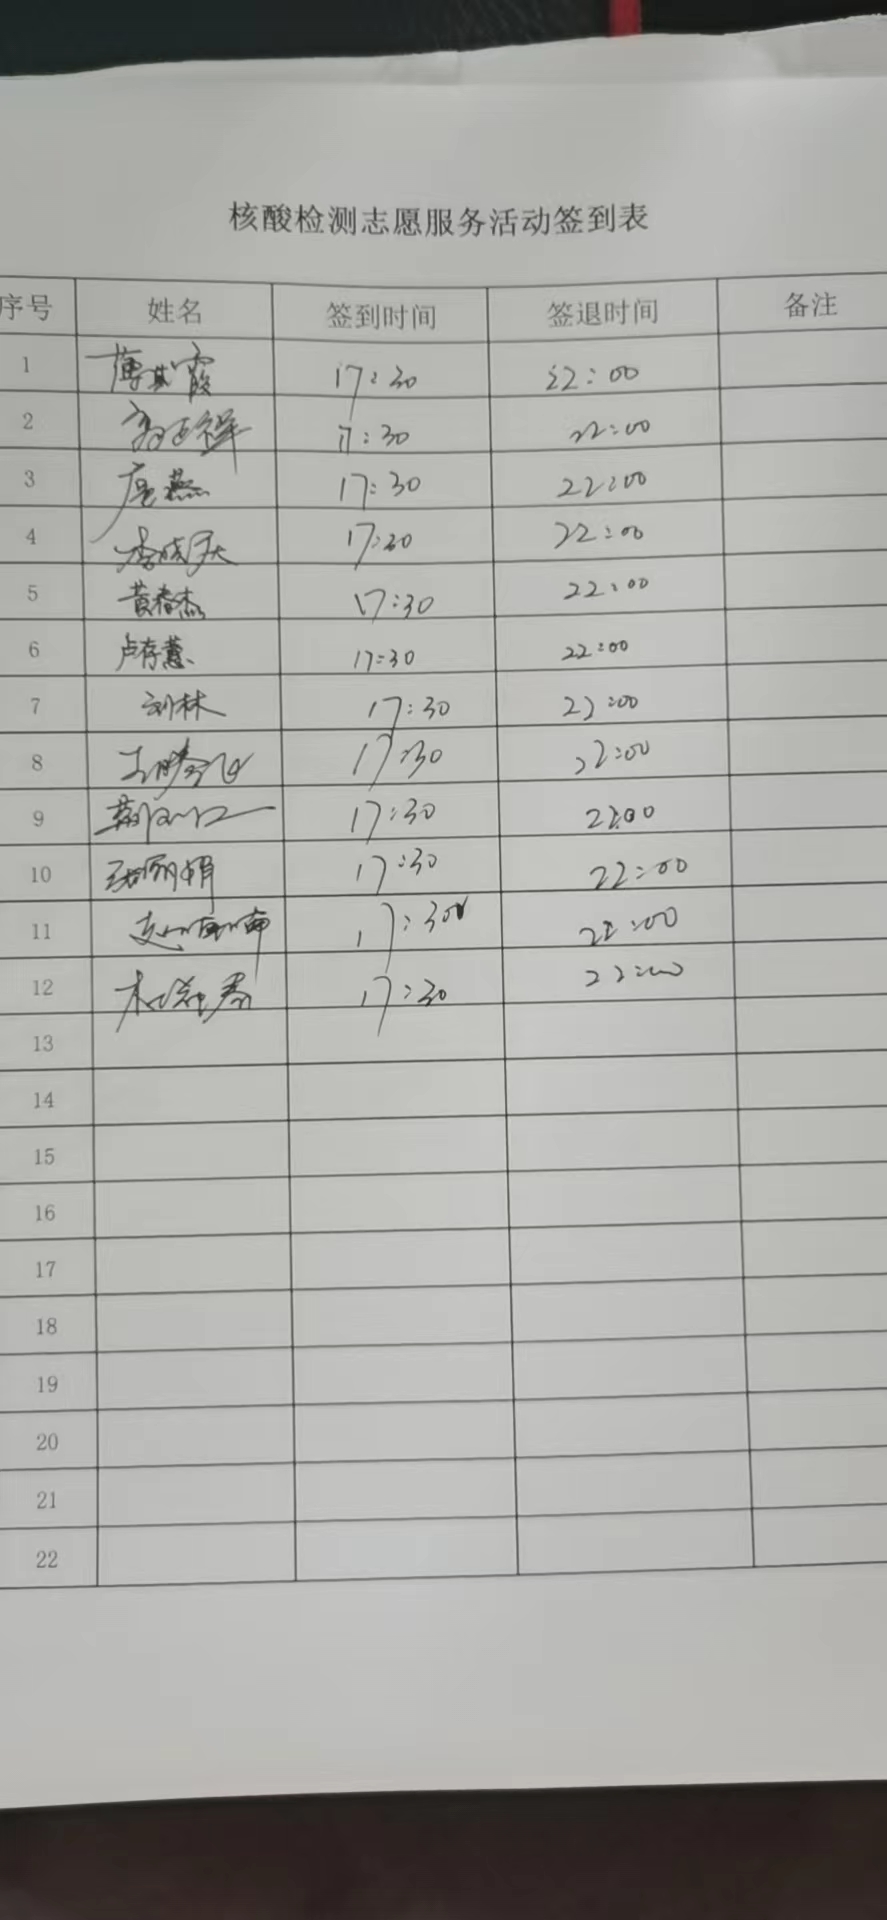 核酸检测志愿服务活动签到表
序号 姓名 签到时间 签退时间 备注
1 薄其霞 17:30 22:00
2 17:30 22:00
3 庞燕 17:30 22:00
4 17:30 22:00
5 黄春杰 17:30 22:00
6 卢存薏 17:30 22:00
7 刘林 17:30 22:00
8 王腾飞 17:30 22:00
9 17:30 22:00
10 张丽娟 17:30 22:00
11 17:30 22:00
12 17:30 22:00
13
14
15
16
17
18
19
20
21
22